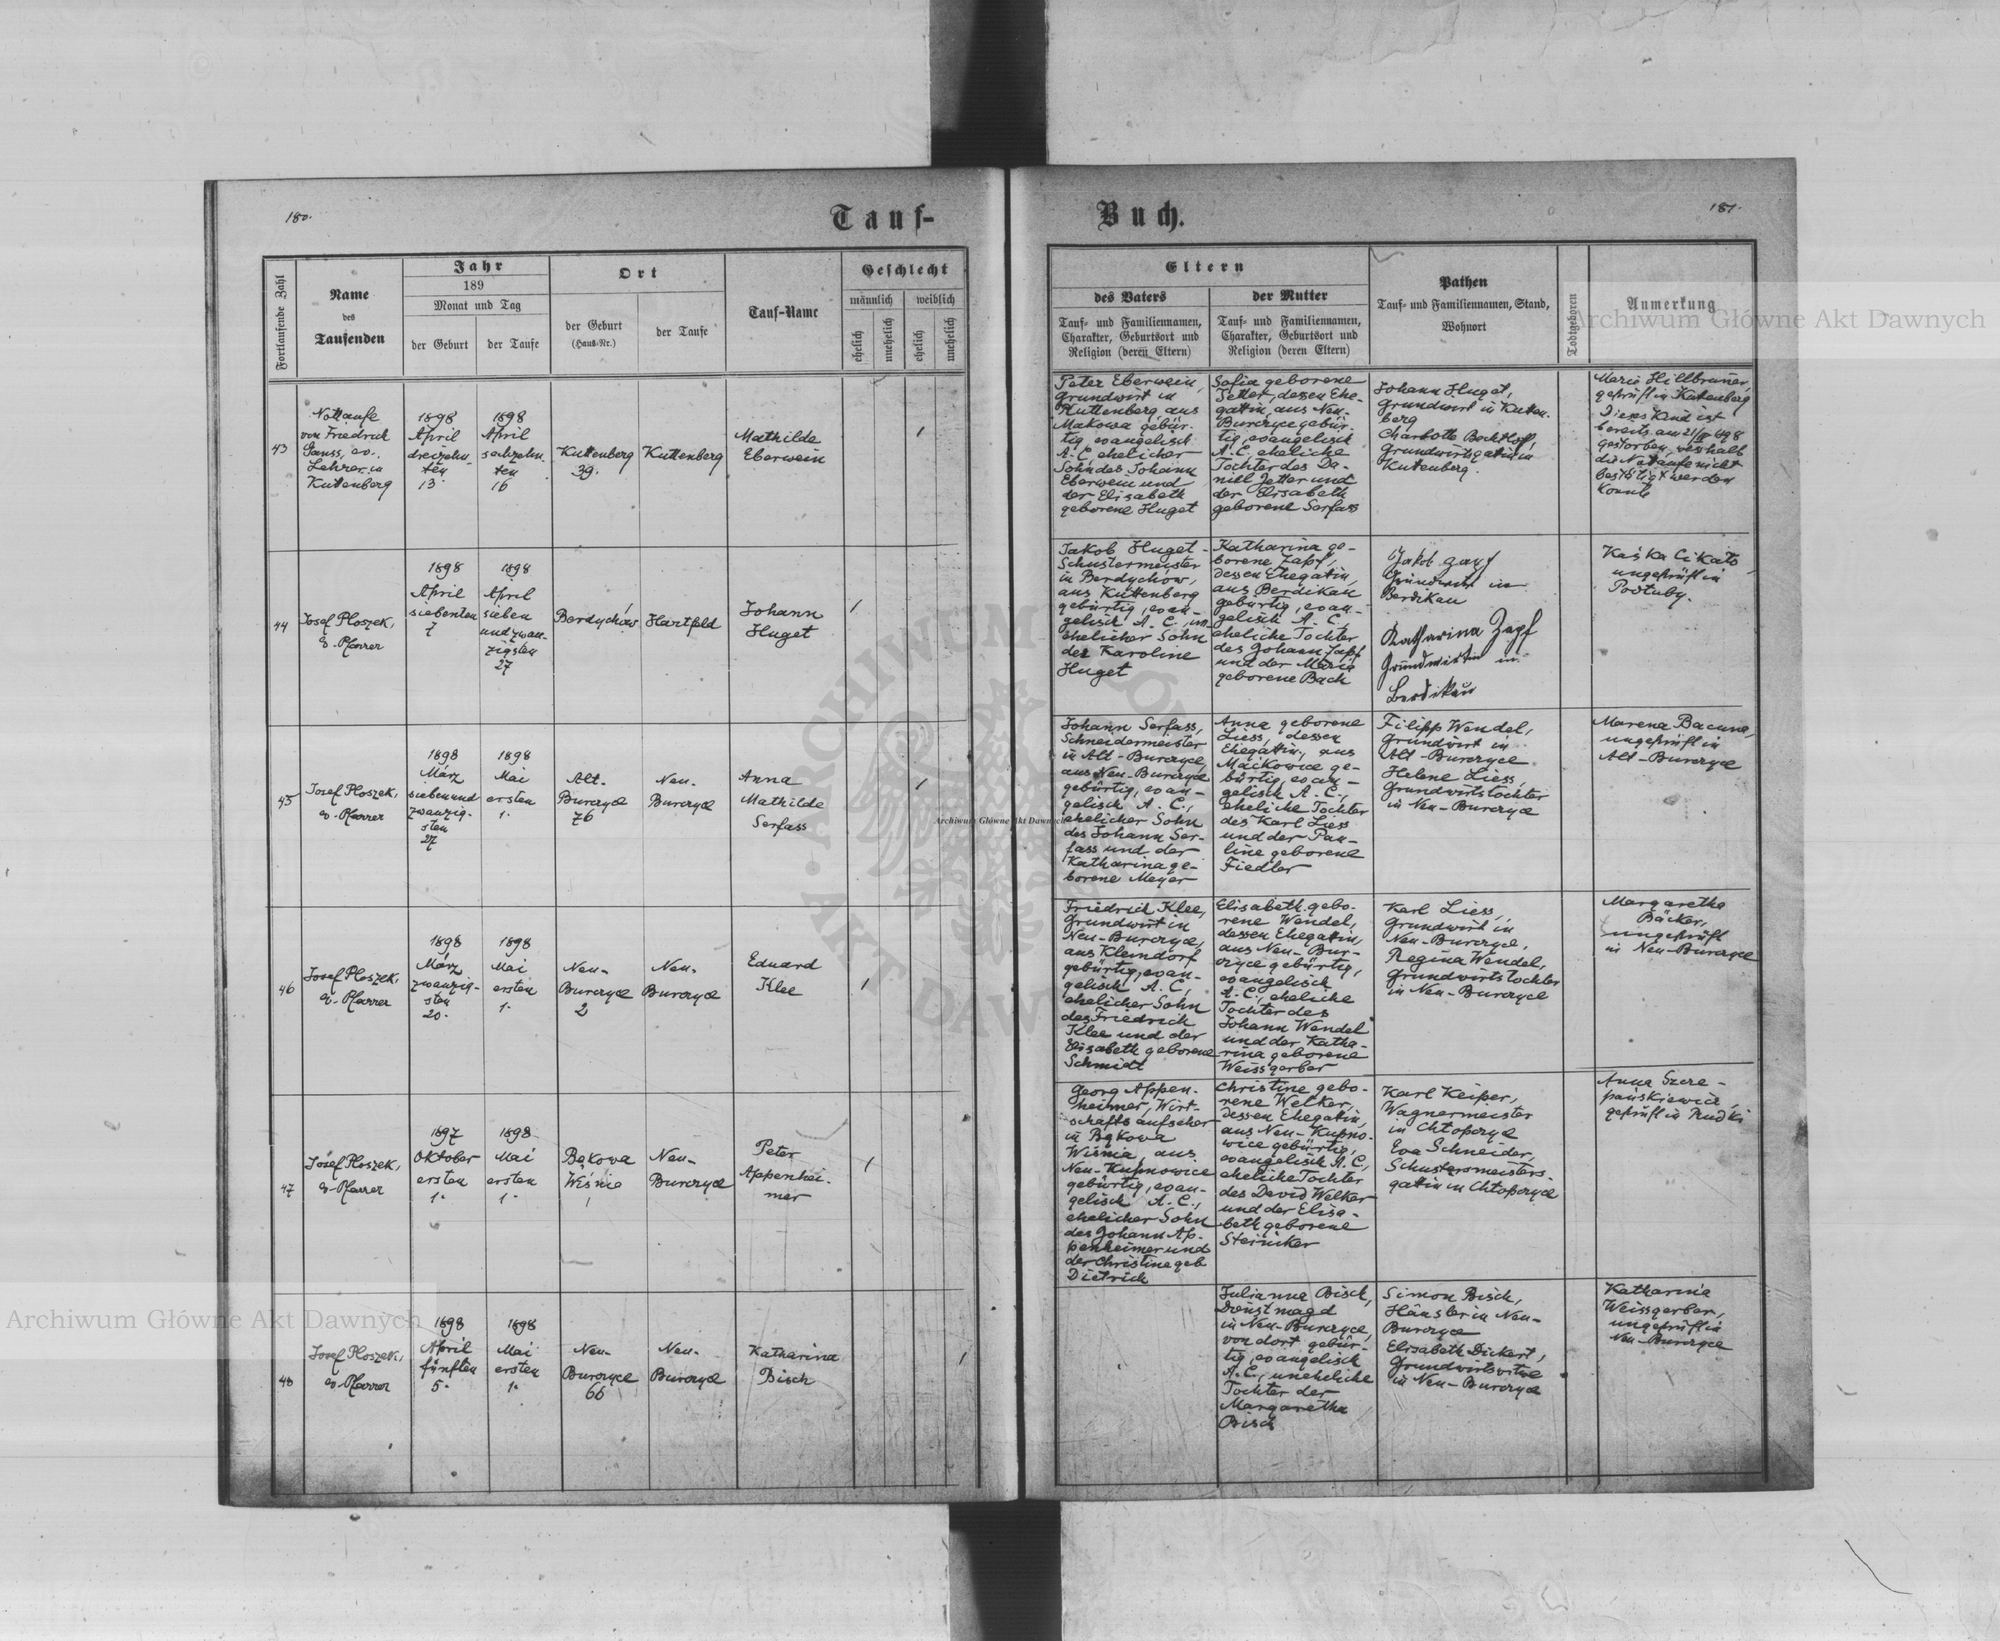 180.
Tauf-
Fortlaufende Zahl
Name
des
Taufenden
Jahr
189
Monat und Tag
der Geburt
der Taufe
Ort
der Geburt
(Haus-Nr.)
der Taufe
Tauf-Name
Geschlecht
männlich
weiblich
ehelich
unehelich
ehelich
unehelich
43
Nottaufe
von Friedrich
ev.
Lehrer in
Kuttenberg
1898
April
dreizehn-
ten
13.
1898
April
sechzehn-
ten
16
Kuttenberg
39.
Kuttenberg
Mathilde
Eberwein
1
44
Josef Ploszek,
ev. Pfarrer
1898
April
siebenten
7
1898
April
sieben
und zwan-
zigsten
27
Berdychów
Hartfeld
Johann
Huget
1
45
Josef Ploszek,
ev. Pfarrer
1898
März
sieben und
zwanzig-
sten
27
1898
Mai
ersten
1.
Alt-
Burczyce
76
Neu-
Burczyce
Anna
Mathilde
Serfass
1
46
Josef Ploszek,
ev. Pfarrer
1898
März
zwanzig-
sten
20.
1898
Mai
ersten
1.
Neu-
Burczyce
2
Neu-
Burczyce
Eduard
Klee
1
47
Josef Ploszek,
ev. Pfarrer
1897
Oktober
ersten
1.
1898
Mai
ersten
1.
Bąkowa
Wiśnia
1
Neu-
Burczyce
Peter
Appenhei-
mer
1
48
Josef Ploszek,
ev. Pfarrer
1898
April
fünften
5.
1898
Mai
ersten
1.
Neu-
Burczyce
66
Neu-
Burczyce
Katharina
Bisch
1
Buch.
181.
Eltern
des Vaters
Tauf- und Familiennamen,
Charakter, Geburtsort und
Religion (deren Eltern)
der Mutter
Tauf- und Familiennamen,
Charakter, Geburtsort und
Religion (deren Eltern)
Pathen
Tauf- und Familiennamen, Stand,
Wohnort
Todtgeboren
Anmerkung
Peter Eberwein,
Grundwirt in
Kuttenberg, aus
Makowa gebür-
tig, evangelisch
A.C. ehelicher
Sohn des Johann
Eberwein und
der Elisabeth
geborene Huget
Sofia geborene
Jetter, dessen Ehe-
gattin, aus Neu-
Burczyce gebür-
tig, evangelisch
A.C. eheliche
Tochter des Da-
niel Jetter und
der Elisabeth
geborene Serfass
Johann Huget,
Grundwirt in Kuten-
berg
Charlotte Bechtloff,
Grundwirtsgattin in
Kutenberg.
Marie Hillbruner,
geprüft in Kutenberg
Dieses Kind ist
bereits am 21/ 1898
gestorben, weshalb
die Nottaufe nicht
bestätigt werden
konnte
Jakob Huget
Schustermeister
in Berdychow,
aus Kuttenberg
gebürtig, evan-
gelisch A.C., un-
ehelicher Sohn
der Karoline
Huget
Katharina ge-
borene Zapf,
dessen Ehegattin,
aus Berdikau
gebürtig, evan-
gelisch A.C.,
eheliche Tochter
des Johann Zapf
und der Maria
geborene Bach
Jakob Zapf
Grundwirth in
Berdikau
Katharina Zapf
Grundwirtin in
Berdikau
Kaśka Cikato,
ungeprüft in
Podłuby.
Johann Serfass,
Schneidermeister
in Alt-Burczyce,
aus Neu-Burczyce
gebürtig, evan-
gelisch A.C.,
ehelicher Sohn
des Johann Ser-
fass und der
Katharina ge-
borene Meyer
Anna geborene
Liess, dessen
Ehegattin, aus
Maikowice ge-
bürtig, evan-
gelisch A.C.,
eheliche Tochter
des Karl Liess
und der Pau-
line geborene
Fiedler
Filipp Wendel,
Grundwirt in
Alt-Burczyce
Helene Liess,
Grundwirtstochter
in Neu-Burczyce
Marena Bacuna,
ungeprüft in
Alt-Burczyce
Friedrich Klee,
Grundwirt in
Neu-Burczyce,
aus Kleindorf
gebürtig, evan-
gelisch A.C.,
ehelicher Sohn
des Friedrich
Klee und der
Elisabeth geborene
Schmidt
Elisabeth gebo-
rene Wendel,
dessen Ehegattin,
aus Neu-Bur-
czyce gebürtig,
evangelisch
A.C., eheliche
Tochter des
Johann Wendel
und der Katha-
rina geborene
Weissgerber
Karl Liess,
Grundwirt in
Neu-Burczyce,
Regina Wendel,
Grundwirtstochter
in Neu-Burczyce
Margaretha
Bäcker,
ungeprüft
in Neu-Burczyce
Georg Appen-
heimer, Wirt-
schaftsaufseher
in Bąkowa
Wiśnia, aus
Neu-Kupnowice
gebürtig, evan-
gelisch A.C.,
ehelicher Sohn
des Johann Ap-
penheimer und
der Christine geb
Dietrich
Christine gebo-
rene Welker,
dessen Ehegattin,
aus Neu-Kupno-
wice gebürtig,
evangelisch A.C.,
eheliche Tochter
des David Welker
und der Elisa-
beth geborene
Steinicker
Karl Keiper,
Wagnermeister
in Chłopczyce
Eva Schneider,
Schustermeisters-
gattin in Chłopczyce
Anna Szcze-
pańskiewicz,
geprüft in Rudki
Julianna Bisch,
Dienstmagd
in Neu-Burczyce,
von dort gebür-
tig, evangelisch
A.C., uneheliche
Tochter der
Margaretha
Bisch
Simon Bisch,
Häusler in Neu-
Burczyce
Elisabeth Dickert,
Grundwirtswitwe
in Neu-Burczyce
Katharina
Weissgerber,
ungeprüft in
Neu-Burczyce
Archiwum Główne Akt Dawnych
Archiwum Główne Akt Dawnych
Archiwum Główne Akt Dawnych